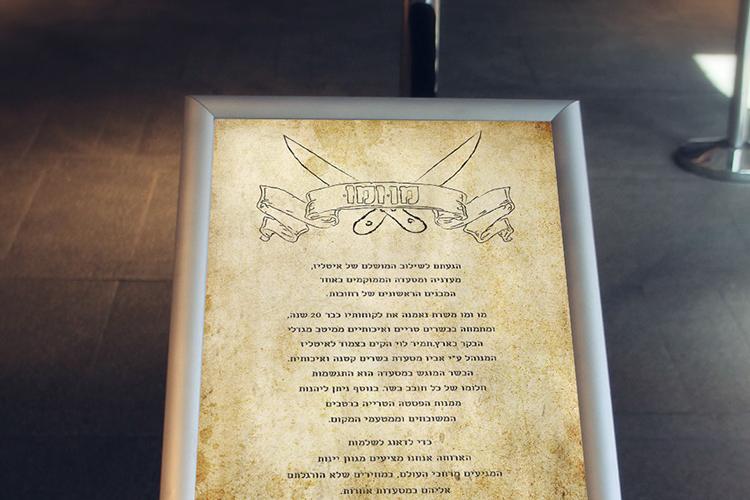 מוומו
הגעתם לשילוב המושלם של איטליז,
מעדניה ומסעדה הממוקמים באחד
המבנים הראשונים של רחובות.
מו ומו משרת נאמנה את לקוחותיו כבר 20 שנה,
ומתמחה בבשרים טריים ואיכותיים ממיטב מגדלי
הבקר בארץ.תמיר לוי הקים בצמוד לאיטליז
המנוהל ע"י אביו מסעדת בשרים קטנה ואיכותית.
הבשר המוגש במסעדה הוא התגשמות
חלומו של כל חובב בשר. בנוסף ניתן ליהנות
ממנות הפסטה הטרייה ברטבים
המשובחים וממטעמי המקום.
כדי לדאוג לשלמות
הארוחה אנחנו מציעים מגוון יינות
המגיעים מרחבי העולם, במחירים שלא הורגלתם
אליהם במסעדות אחרות.